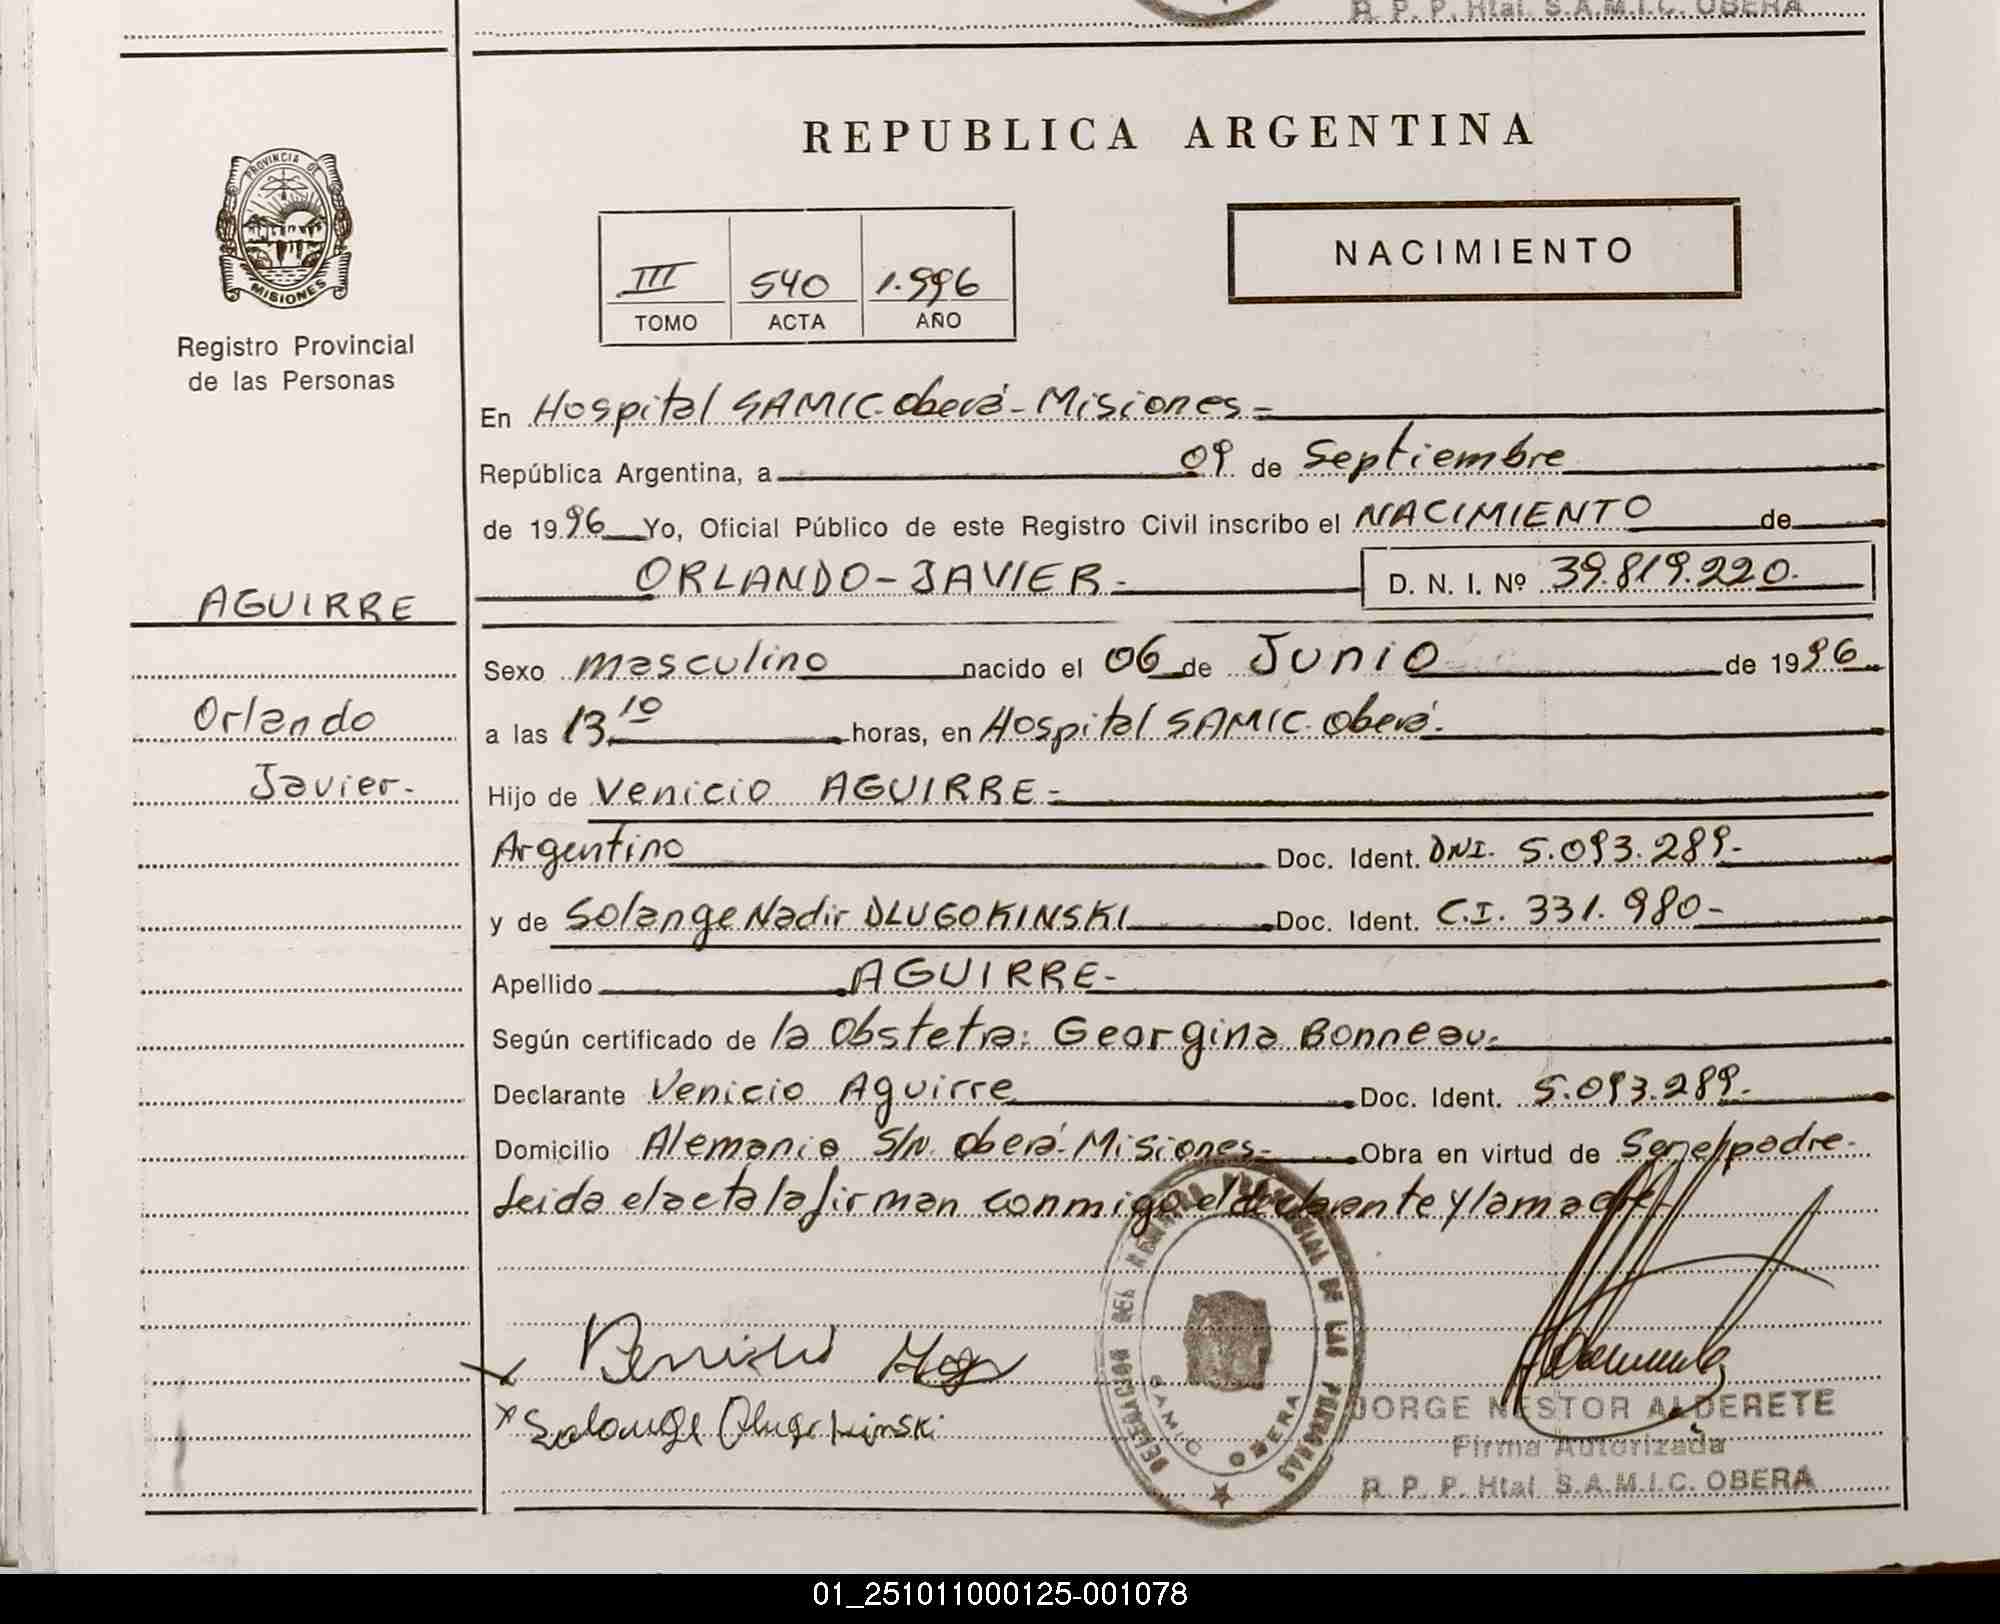 R. P. P. Htal. S.A.M.I.C. OBERA
REPUBLICA ARGENTINA
PROVINCIA DE
MISIONES
Registro Provincial
de las Personas
III 540 1.996
TOMO ACTA AÑO
NACIMIENTO
En Hospital SAMIC-Oberá-Misiones=
República Argentina, a 09 de Septiembre
de 1996 Yo, Oficial Público de este Registro Civil inscribo el NACIMIENTO de
ORLANDO-JAVIER- D. N. I. Nº 39.819.220-
AGUIRRE
Sexo masculino nacido el 06 de Junio de 1996
Orlando
a las 13,10 horas, en Hospital SAMIC-Oberá-
Javier-
Hijo de Venicio AGUIRRE-
Argentino Doc. Ident. DNI. 5.093.289-
y de Solange Nadir DLUGOKINSKI Doc. Ident. C.I. 331.980-
Apellido AGUIRRE-
Según certificado de la Obstetra: Georgina Bonneau-
Declarante Venicio Aguirre Doc. Ident. 5.093.289-
Domicilio Alemania S/N. Oberá-Misiones- Obra en virtud de Ser el padre-
Leida el acta la firman conmigo el declarante y la madre-
DELEGACION DEL REGISTRO PROVINCIAL DE LAS PERSONAS
SAMIC OBERA
Solange Dlugokinski
JORGE NESTOR ALDERETE
Firma Autorizada
R. P. P. Htal. S.A.M.I.C. OBERA
01_251011000125-001078